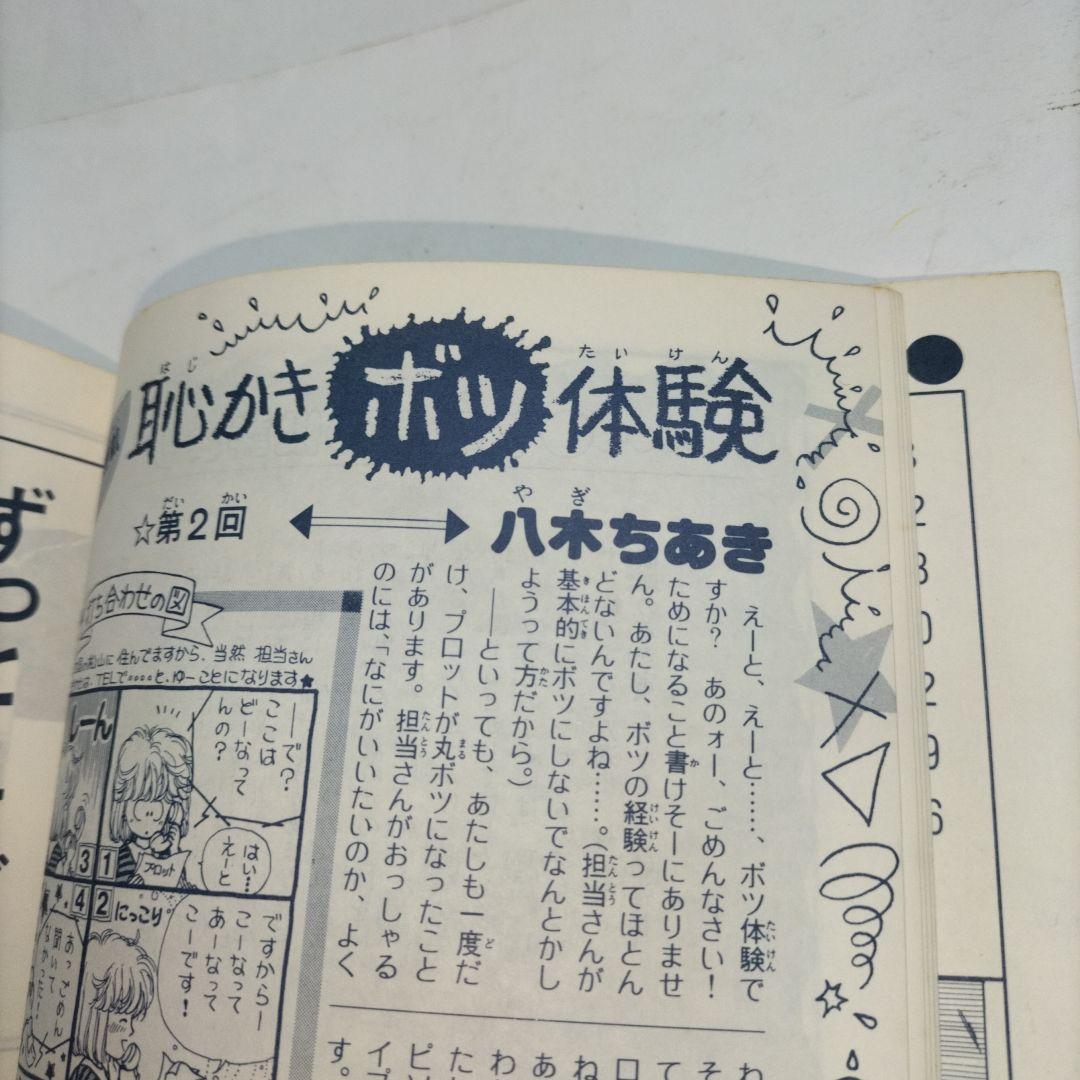 恥かきボツ体験
はじ
たいけん
☆第2回
だい かい
八木ちあき
やぎ
えーと、えーと……、ボツ体験で
すか? あのォー、ごめんなさい!
ためになること書けそーにありませ
ん。あたし、ボツの経験ってほとん
どないんですよね……。(担当さんが
基本的にボツにしないでなんとかし
ようって方だから。)
――といっても、あたしも一度だ
け、プロットが丸ボツになったこと
があります。担当さんがおっしゃる
のには、「なにがいいたいのか、よく
打ち合わせの図
山に住んでますから、当然 担当さん
TELで・・・・と、ゆーことになります★
――で?
ここは
どーなって
んの?
はい…
えーと
プロット
1
しーん
3
ですからー
こーなって
あーなって
こーです!
にっこり
2
4
あっごめん
聞いて
なかった!
ずっと
2
3
0
2
9
6